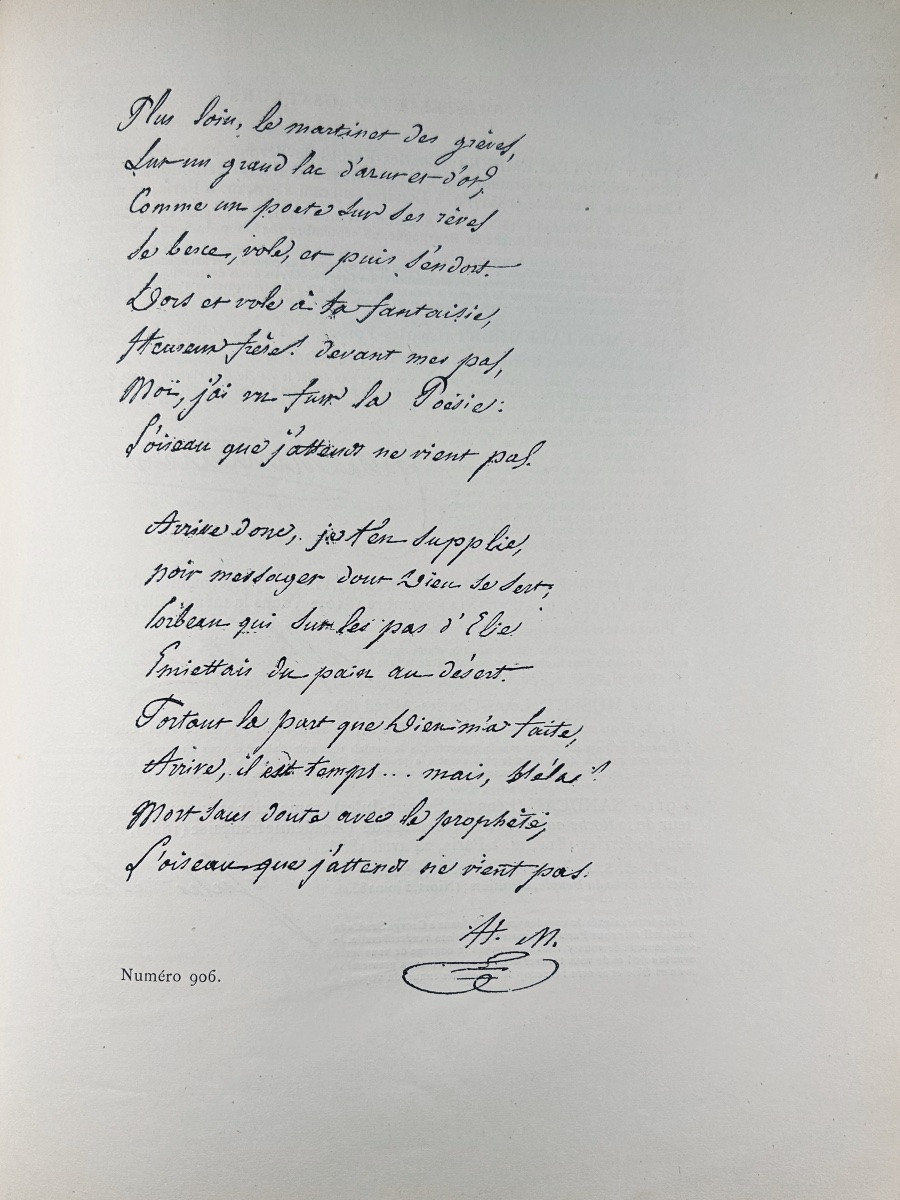 Plus loin, le martinet des grèves,
Sur un grand lac d'azur et d'or,
Comme un poete sur ses rêves
Se berce, vole, et puis s'endort.
Dors et vole à ta fantaisie,
Heureux frère! devant mes pas,
Moi, j'ai vu fuir la Poésie:
L'oiseau que j'attends ne vient pas.
Arrive donc, je t'en supplie,
noir messager dont Dieu se sert;
Corbeau qui sur les pas d'Elie
Emiettais du pain au désert.
Portant la part que Dieu m'a faite,
Arrive, il est temps... mais, Hélas!
Mort sans doute avec le prophète,
L'oiseau que j'attends ne vient pas.
H. M.
Numéro 906.